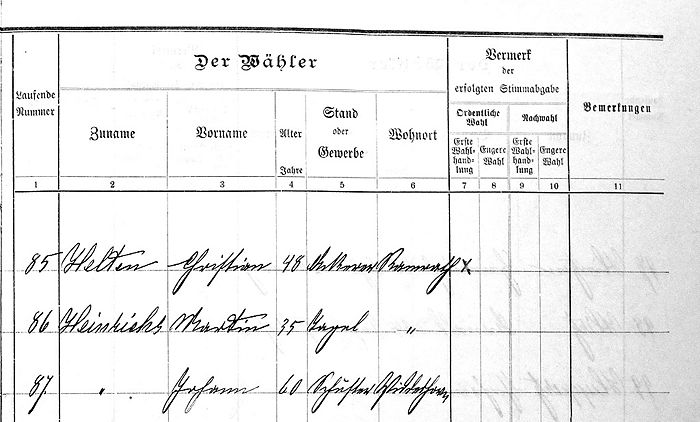 Der Wähler
Vermerk
der
erfolgten Stimmabgabe
Laufende
Nummer
Zuname
Vorname
Alter
Jahre
Stand
oder
Gewerbe
Wohnort
Ordentliche
Wahl
Nachwahl
Erste
Wahl-
hand-
lung
Engere
Wahl
Erste
Wahl-
hand-
lung
Engere
Wahl
Bemerkungen
1 2 3 4 5 6 7 8 9 10 11
85 Helten Christian 48 Ackerer Ramrath x
86 Heinrichs Martin 35 "
87. " Johann 60 Schuster